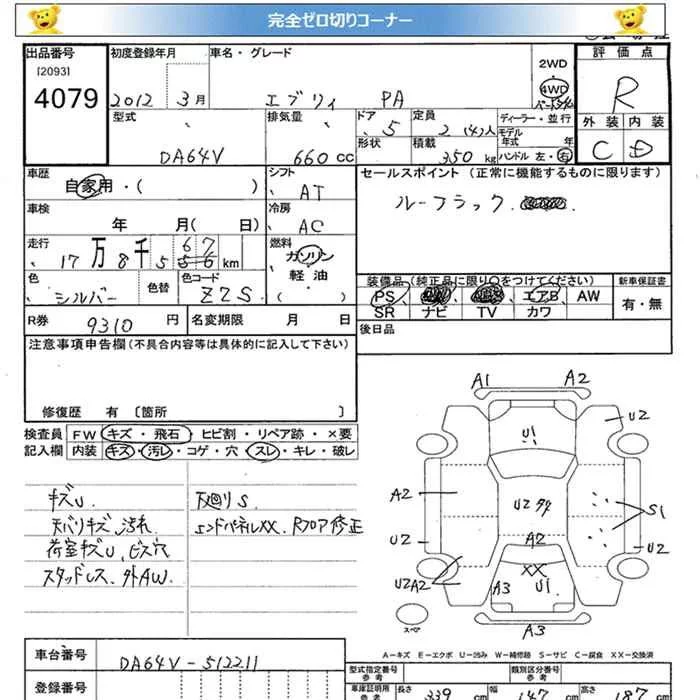 完全ゼロ切りコーナー
出品番号 初度登録年月 車名・グレード 2WD 評価点
[2093]
4079 2012 3月 エブリィ PA 4WD R
パートタイム
型式 排気量 ドア 定員 ディーラー・並行 外装 内装
DA64V 660cc 5 2(4)人 モデル年式 年 C D
形状 積載 350kg ハンドル 左・右
車歴 シフト セールスポイント(正常に機能するものに限ります)
自家用・( ) AT ルーフラック
車検 冷房
年 月( 日) AC
走行 燃料
17万8千567 km ガソリン
軽油
色 色替 色コード ( ) 装備品(純正品に限り○をつけてください) 新車保証書
シルバー ZZS PS エアB AW 有・無
SR ナビ TV カワ
R券 9310円 名変期限 月 日 後日品
注意事項申告欄(不具合内容等は具体的に記入して下さい)
修復歴 有 〔箇所 〕
検査員 FW キズ・飛石・ヒビ割・リペア跡・×要
記入欄 内装 キズ・汚レ・コゲ・穴・スレ・キレ・破レ
キズU 下廻りS
天バリキズ、汚れ エンドパネルXX、Rフロア修正
荷室キズU、ビス穴
スタッドレス、外AW
A1 A2
U2
U1
A2 U2 タタ S1
U2 A2 U2
XX
U2A2 A3 U1
スペア A3
A-キズ E-エクボ U-凹み W-補修跡 S-サビ C-腐食 XX-交換済
車台番号 DA64V-512211
型式指定番号 参考 類別区分番号 参考
登録番号 車庫証明用 参考 長さ 339 cm 幅 147 cm 高さ 187 cm